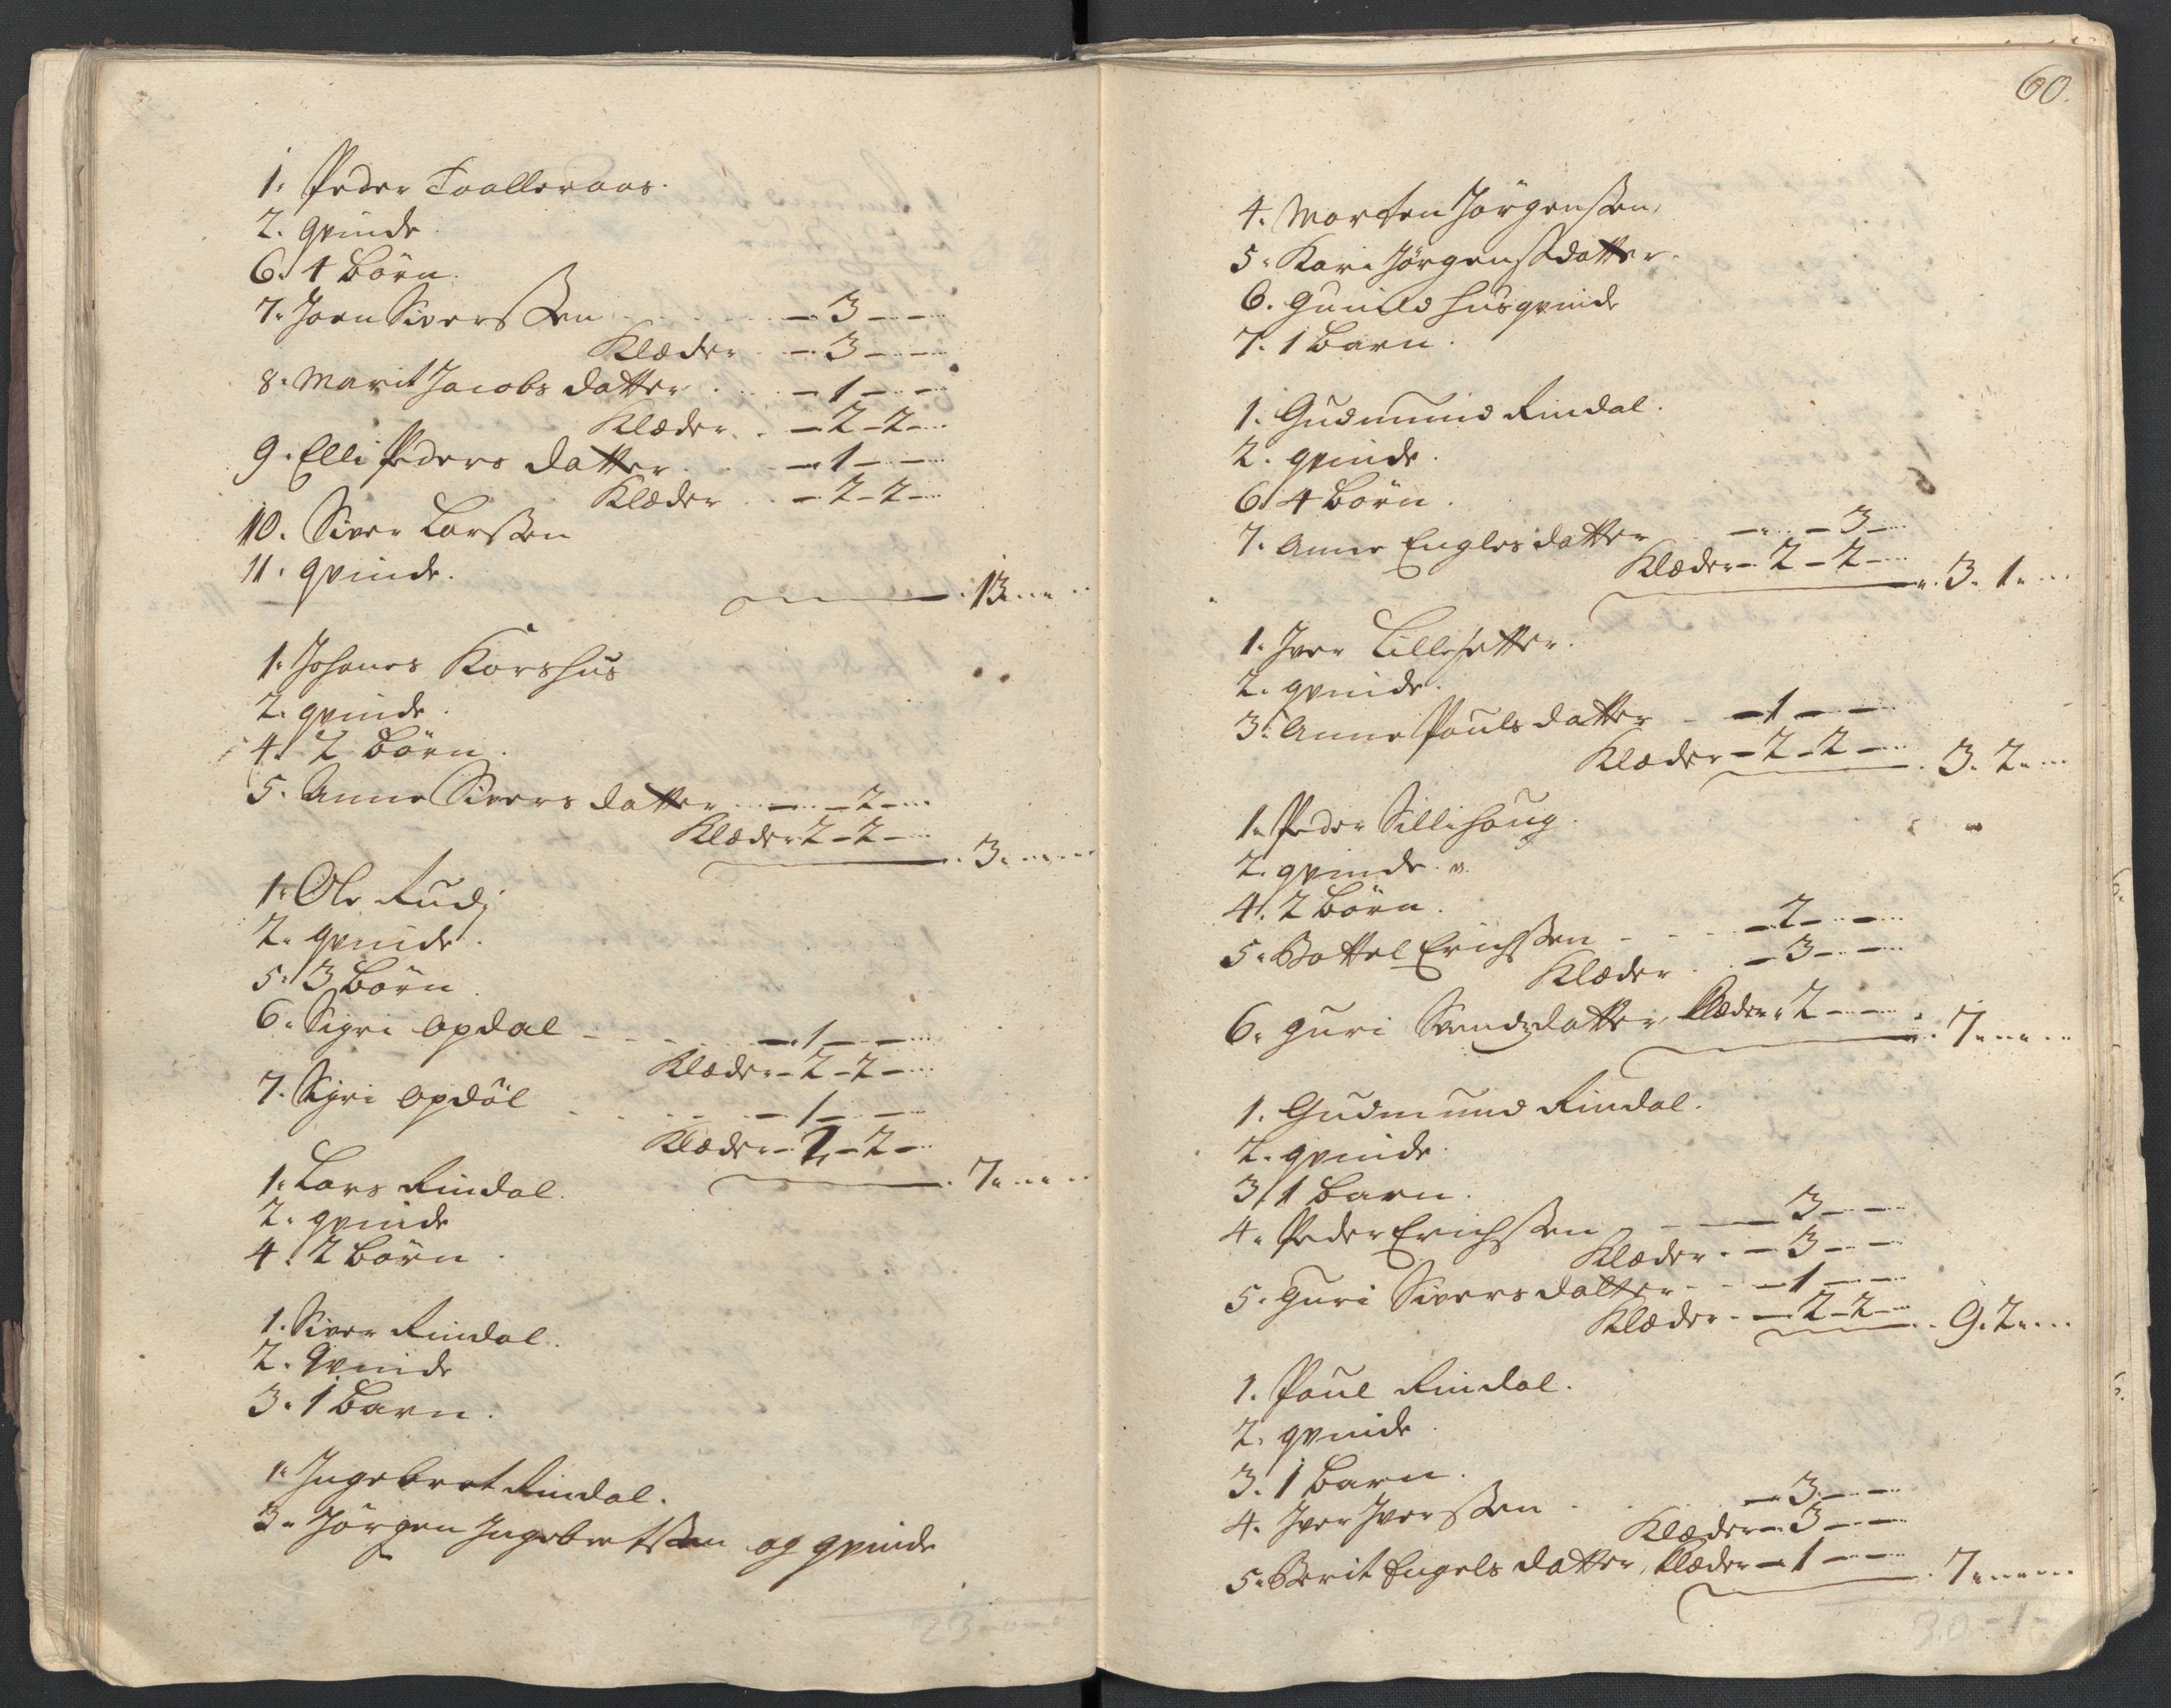 1. Peder Taalleraas.
2. qvinde.
6. 4 Börn.
7. Joen Siverssen - 3 - -
Klæder - 3 - -
8. Marit Jacobs datter - 1 - -
Klæder - 2 - 2 -
9. Elli Peders datter - 1 - -
Klæder - 2 - 2 -
10. Siver Larssen
11. qvinde.
13 - -
1. Johanes Korshus
2. qvinde.
4. 2 Börn.
5. Anne Sivers datter - - 2 -
Klæder 2 - 2 -
3 - -
1. Ole Rudj
2. qvinde.
5. 3 Börn.
6. Sigri Opdal - 1 - -
Klæder - 2 - 2 -
7. Sigri Opdöl - 1 - -
Klæder - 2 - 2 -
7 - -
1. Lars Rindal.
2. qvinde
4. 2 Börn.
1. Siver Rindal.
2. Qvinde
3. 1 Barn.
1. Ingebret Rindal.
3. Jörgen Ingebretssen og qvinde
23 - 0 -
60.
4. Morten Jörgenssen,
5. Kari Jörgensdatter.
6. Gunild husqvinde
7. 1 Barn.
1. Gudmund Rindal.
2. qvinde.
6. 4 Börn.
7. Anne Engles datter - - 3 -
Klæder - 2 - 2 -
3. 1 -
1. Iver Lillesetter.
2. qvinde.
3. Anne Pouls datter - 1 - -
Klæder - 2 - 2 -
3. 2 -
1. Peder Sillihoug.
2. qvinde.
4. 2 Börn.
5. Bottel Erichssen - 2 - -
Klæder - 3 - -
6. guri Svendzdatter, Klæder 2 - -
7 - -
1. Gudmund Rindal.
2. qvinde.
3. 1 Barn.
4. Peder Erichssen - 3 - -
Klæder - 3 - -
5. Guri Sivers datter - 1 - -
Klæder - 2 - 2 -
9. 2 -
1. Poul Rindal.
2. qvinde
3. 1 Barn.
4. Iver Iverssen - 3 - -
Klæder - 3 - -
5. Berit Engels datter, Klæder - 1 - -
7 - -
30 - 1 -